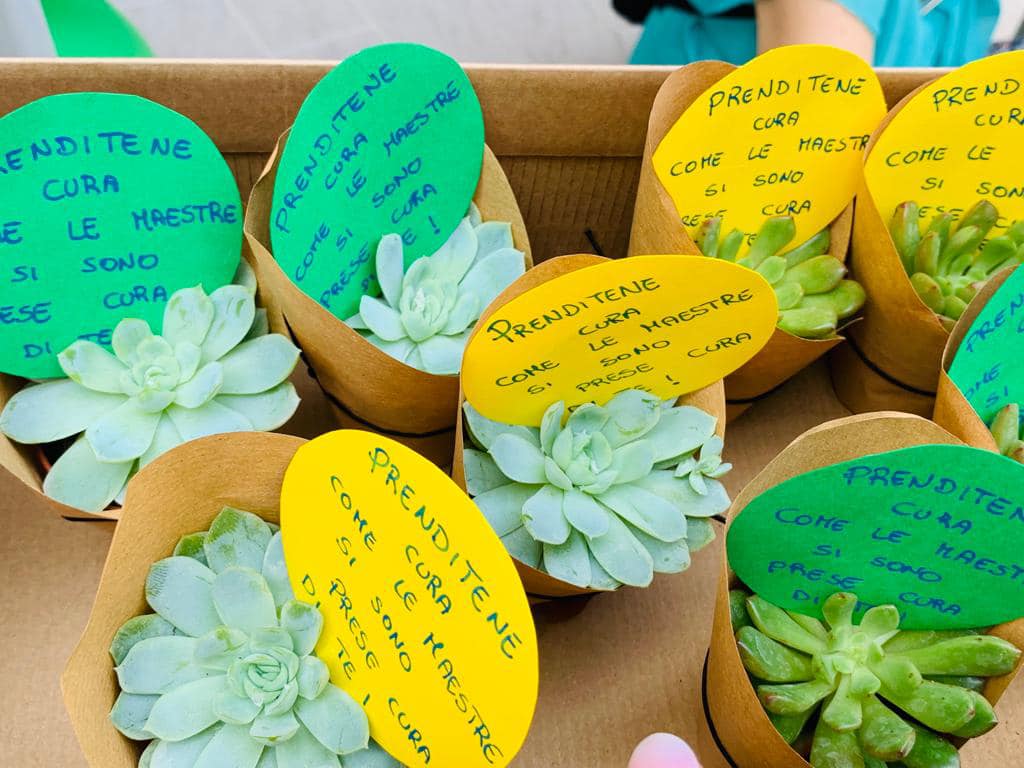 RENDITENE
CURA
LE MAESTRE
SI SONO
ESE CURA
DI TE
PRENDITENE
CURA
COME LE MAESTRE
SI SONO
PRESE CURA
!
PRENDITENE
CURA
COME LE MAESTR
SI SONO
PRESE CURA
PREND
CURA
COME LE
SI SON
PRENDITENE
CURA
COME LE MAESTRE
SI SONO
PRESE CURA
!
PREN
COME
SI
PRENDITENE
CURA
COME LE MAESTRE
SI SONO
PRESE CURA
DI TE !
PRENDITEN
CURA
COME LE MAEST
SI SONO
PRESE CURA
DI